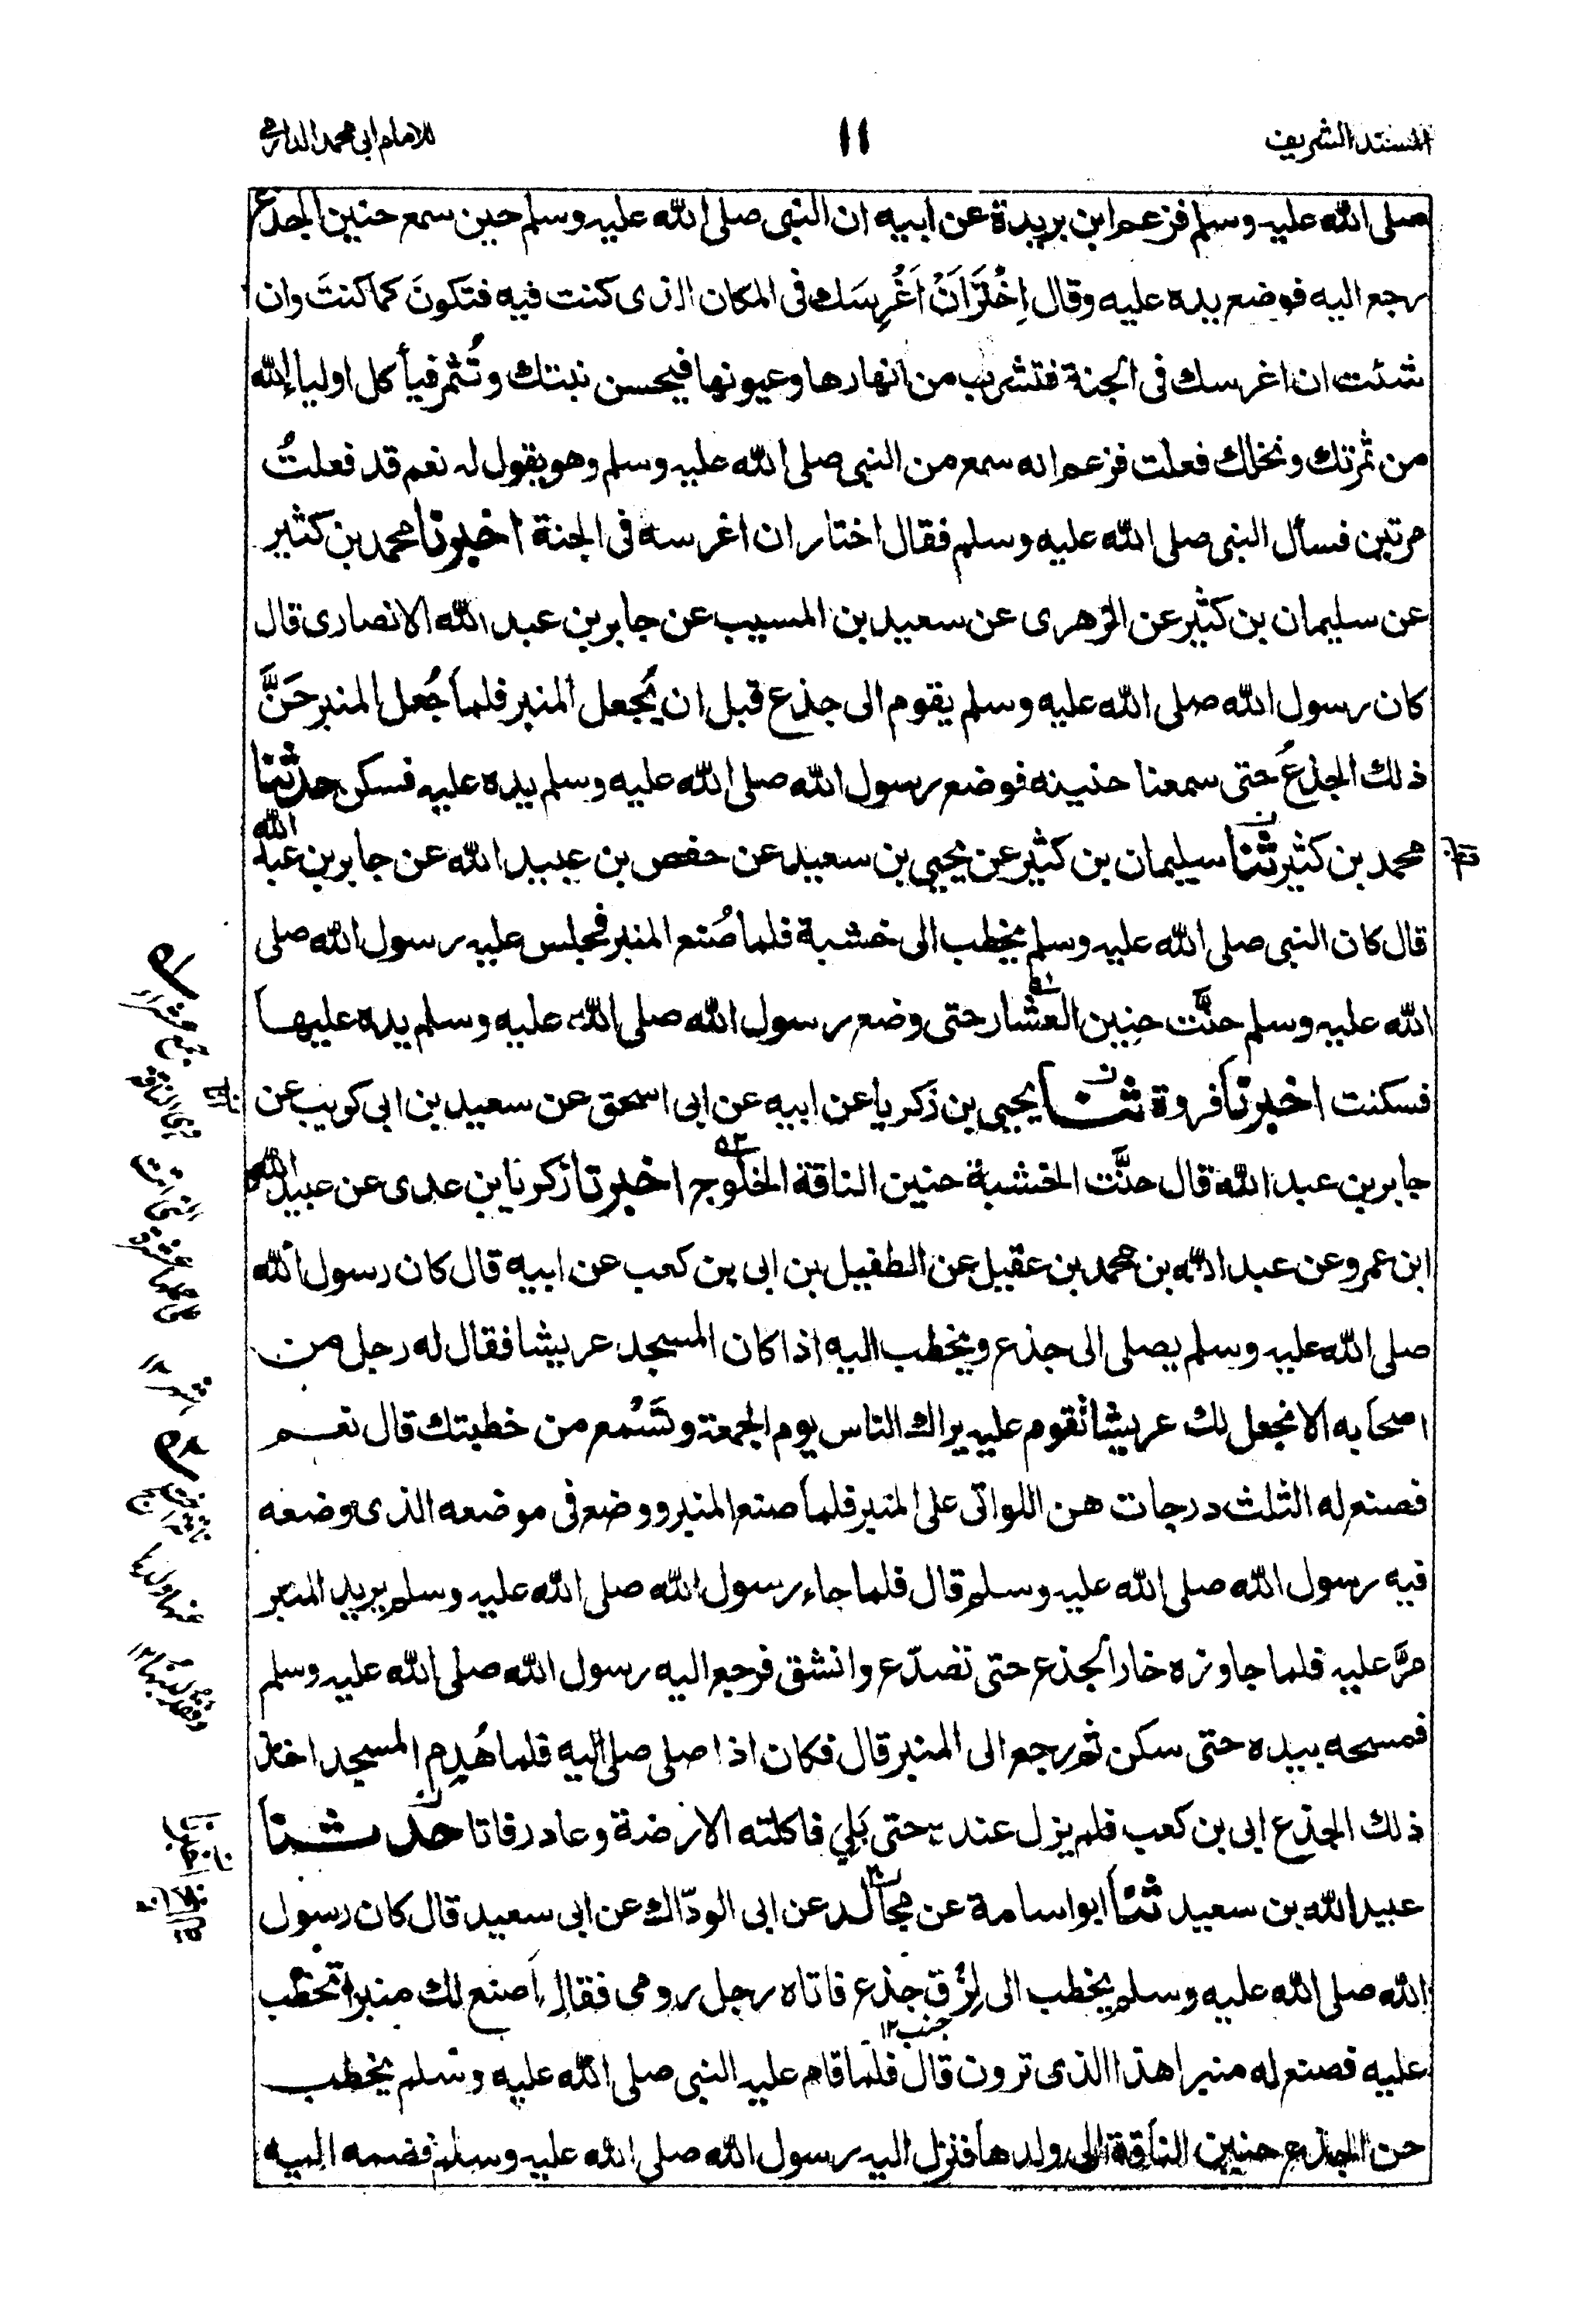 المسند الشريف
١١
للامام ابى محمد الدارمى
صلى الله عليه وسلم فزعم ابن بريدة عن ابيه ان النبى صلى الله عليه وسلم حين سمع حنين الجذع
رجع اليه فوضع يده عليه وقال اِخْتَرْ اَنْ اَغْرِسَك فى المكان الذى كنت فيه فتكونَ كما كنتَ وان
شئت ان اغرسك فى الجنة فتشرب من انهارها وعيونها فيحسن نبتك وتُثمر فيأكل اولياء الله
من ثمرتك ونخلك فعلت فزعم انه سمع من النبى صلى الله عليه وسلم وهو يقول له نعم قد فعلتُ
مرتين فسأل النبى صلى الله عليه وسلم فقال اختار ان اغرسه فى الجنة اخبرنا محمد بن كثير
عن سليمان بن كثير عن الزهرى عن سعيد بن المسيب عن جابر بن عبد الله الانصارى قال
كان رسول الله صلى الله عليه وسلم يقوم الى جذع قبل ان يُجعل المنبر فلما جُعل المنبر حَنَّ
ذلك الجذعُ حتى سمعنا حنينه فوضع رسول الله صلى الله عليه وسلم يده عليه فسكن حدثنا
محمد بن كثير ثنا سليمان بن كثير عن يحيى بن سعيد عن حفص بن عبيد الله عن جابر بن عبد الله
قال كان النبى صلى الله عليه وسلم يخطب الى خشبة فلما صُنع المنبر فجلس عليه رسول الله صلى
الله عليه وسلم حنَّت حنين العشار حتى وضع رسول الله صلى الله عليه وسلم يده عليها
فسكنت اخبرنا فروة ثنا يحيى بن زكريا عن ابيه عن ابى اسحق عن سعيد بن ابى كريب عن
جابر بن عبد الله قال حنَّت الخشبة حنين الناقة الخلوج اخبرنا زكريا بن عدى عن عبيد الله
ابن عمرو عن عبد الله بن محمد بن عقيل عن الطفيل بن ابى بن كعب عن ابيه قال كان رسول الله
صلى الله عليه وسلم يصلى الى جذع ويخطب اليه اذا كان المسجد عريشا فقال له رجل من
اصحابه الا نجعل لك عريشا تقوم عليه يراك الناس يوم الجمعة وتَسْمع من خطبتك قال نعم
فصنع له الثلث درجات هن اللواتى على المنبر فلما صنع المنبر ووضع فى موضعه الذى وضعه
فيه رسول الله صلى الله عليه وسلم قال فلما جاء رسول الله صلى الله عليه وسلم يريد المنبر
مرَّ عليه فلما جاوزه خار الجذع حتى تصدّع وانشق فرجع اليه رسول الله صلى الله عليه وسلم
فمسحه بيده حتى سكن ثم رجع الى المنبر قال فكان اذا صلى صلى اليه فلما هُدِم المسجد اخذ
ذلك الجذع ابى بن كعب فلم يزل عنده حتى بَلِي فاكلته الارضة وعاد رفاتا حدثنا
عبيد الله بن سعيد ثنا ابو اسامة عن مجالد عن ابى الودّاك عن ابى سعيد قال كان رسول
الله صلى الله عليه وسلم يخطب الى لِزْق جذع فاتاه رجل رومى فقال اَصنع لك منبرا تخطب
جنب١٢
عليه فصنع له منبرا هذا الذى ترون قال فلما قام عليه النبى صلى الله عليه وسلم يخطب
حن الجذع حنين الناقة الى ولدها فنزل اليه رسول الله صلى الله عليه وسلم فضمه اليه